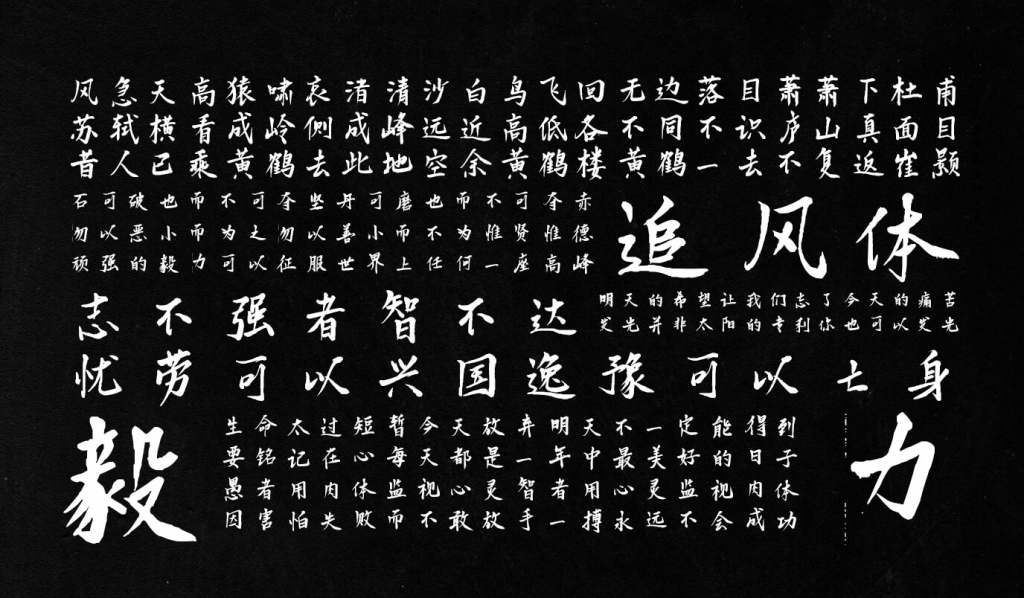 风急天高猿啸哀渚清沙白鸟飞回无边落目萧萧下杜甫
苏轼横看成岭侧成峰远近高低各不同不识庐山真面目
昔人已乘黄鹤去此地空余黄鹤楼黄鹤一去不复返崔颢
石可破也而不可夺坚丹可磨也而不可夺赤
勿以恶小而为之勿以善小而不为惟贤惟德
顽强的毅力可以征服世界上任何一座高峰
追风体
明天的希望让我们忘了今天的痛苦
发光并非太阳的专利你也可以发光
志不强者智不达
忧劳可以兴国逸豫可以亡身
毅
生命太过短暂今天放弃明天不一定能得到
要铭记在心每天都是一年中最美好的日子
愚者用肉体监视心灵智者用心灵监视肉体
因害怕失败而不敢放手一搏永远不会成功
力